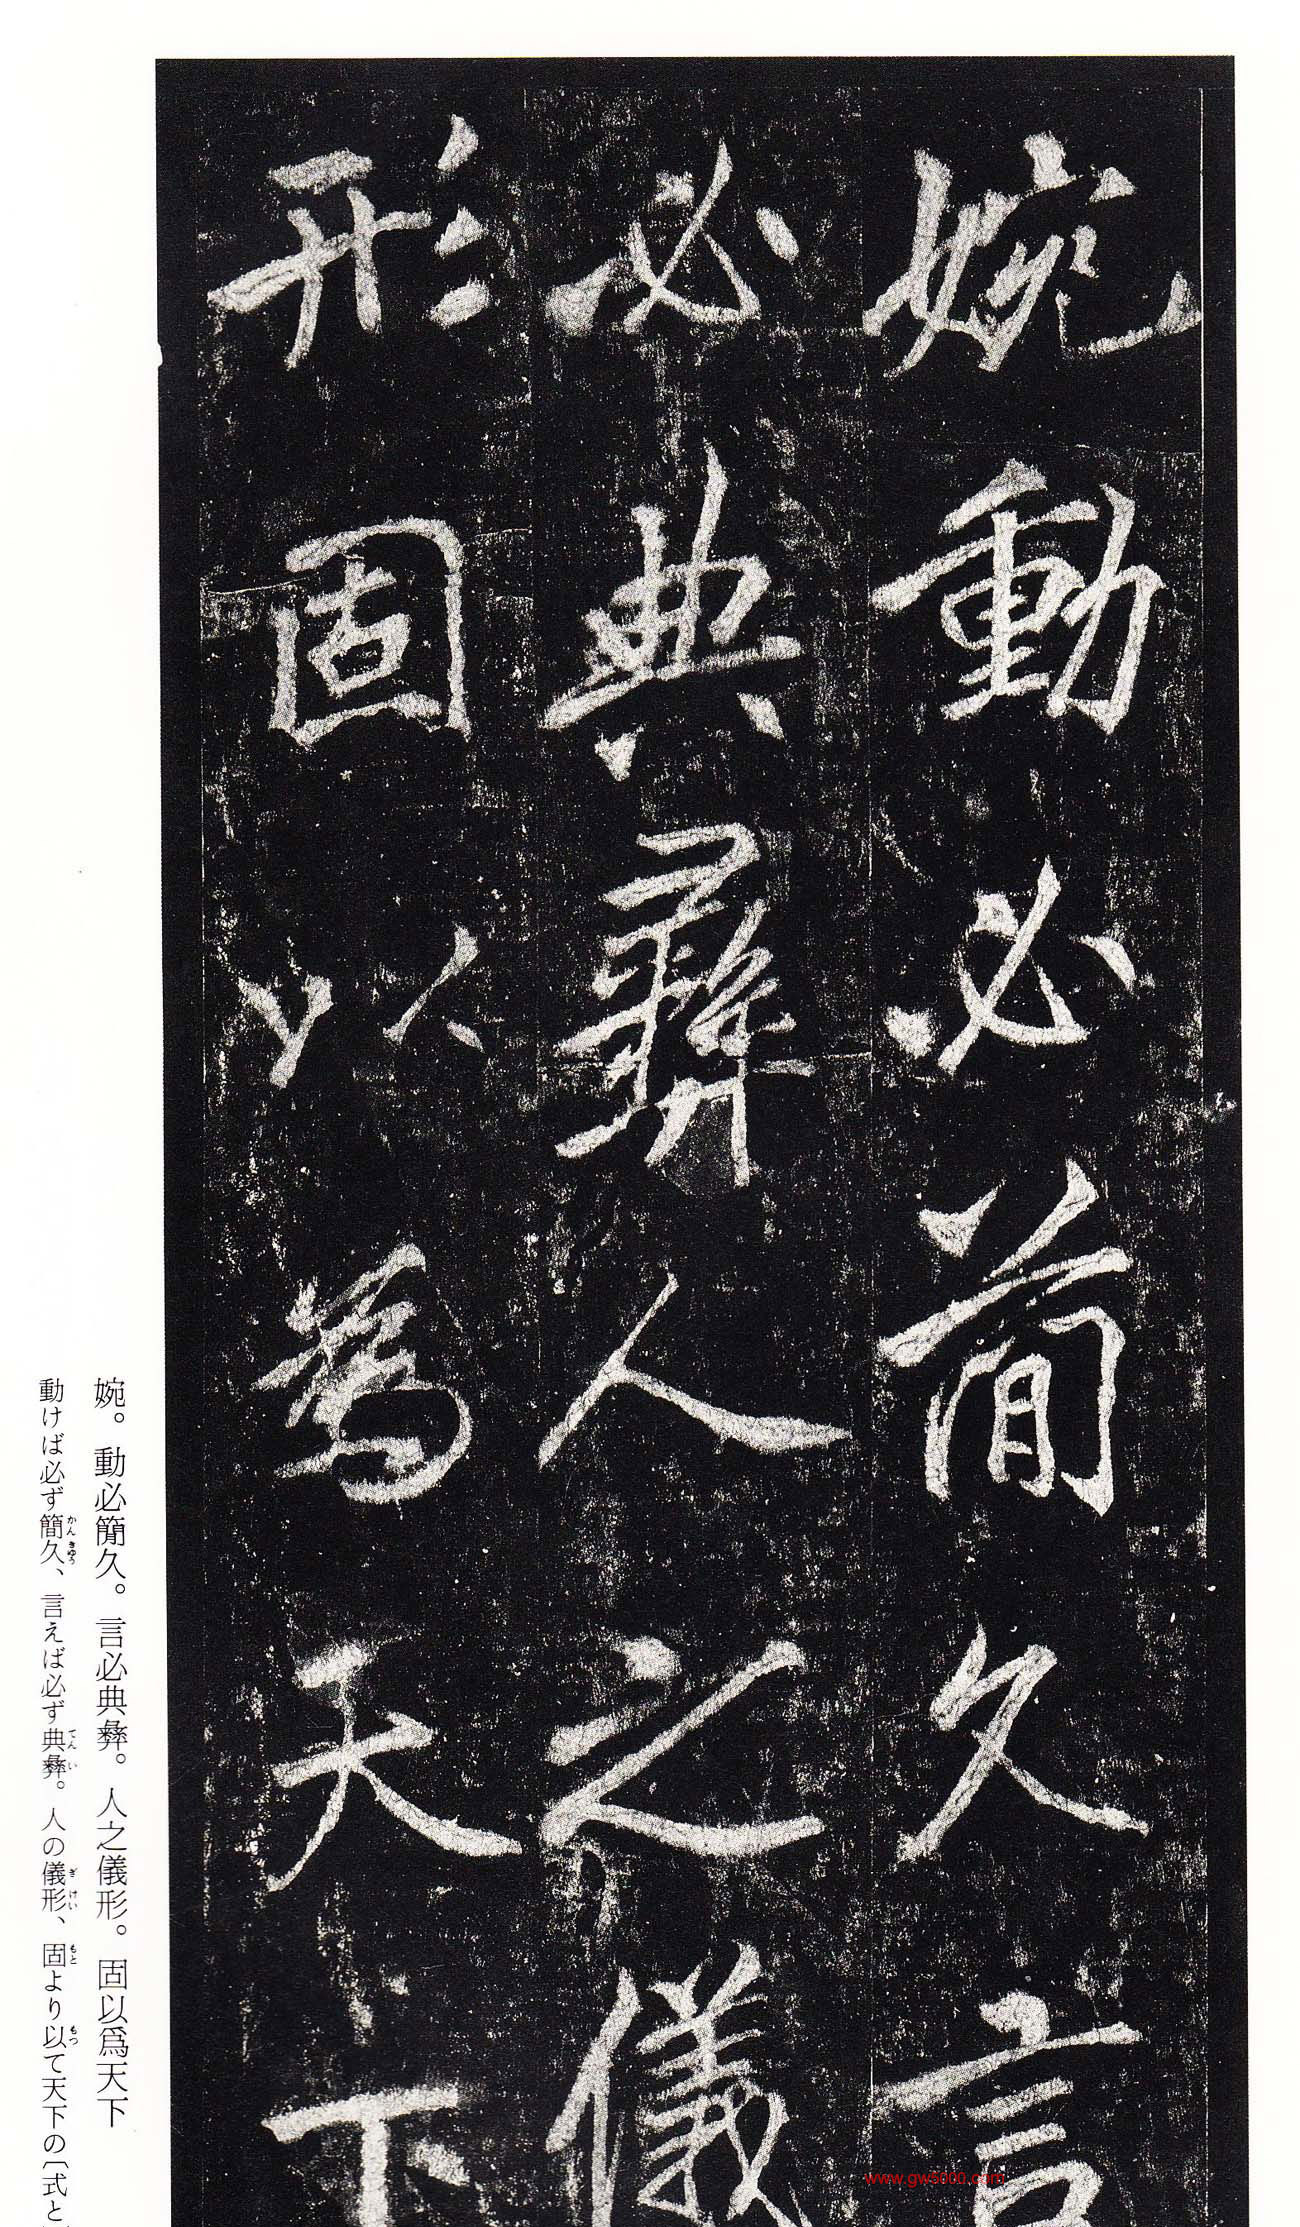 婉動必簡久言
必典彝人之儀
形固以爲天下
婉。動必簡久。言必典彝。人之儀形。固以爲天下
動けば必ず簡久、言えば必ず典彝。人の儀形、固より以て天下の〔式と
かんきゅう
てんい
ぎけい
もと
もつ
www.gw5000.com